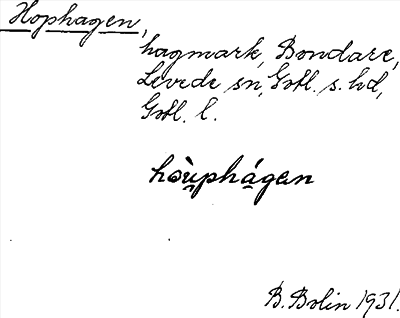 Hophagen,
hagmark, Bondare,
Levede sn, Gotl. s. hd,
Gotl. l.
hòu̯phágen
B. Bolin 1931.